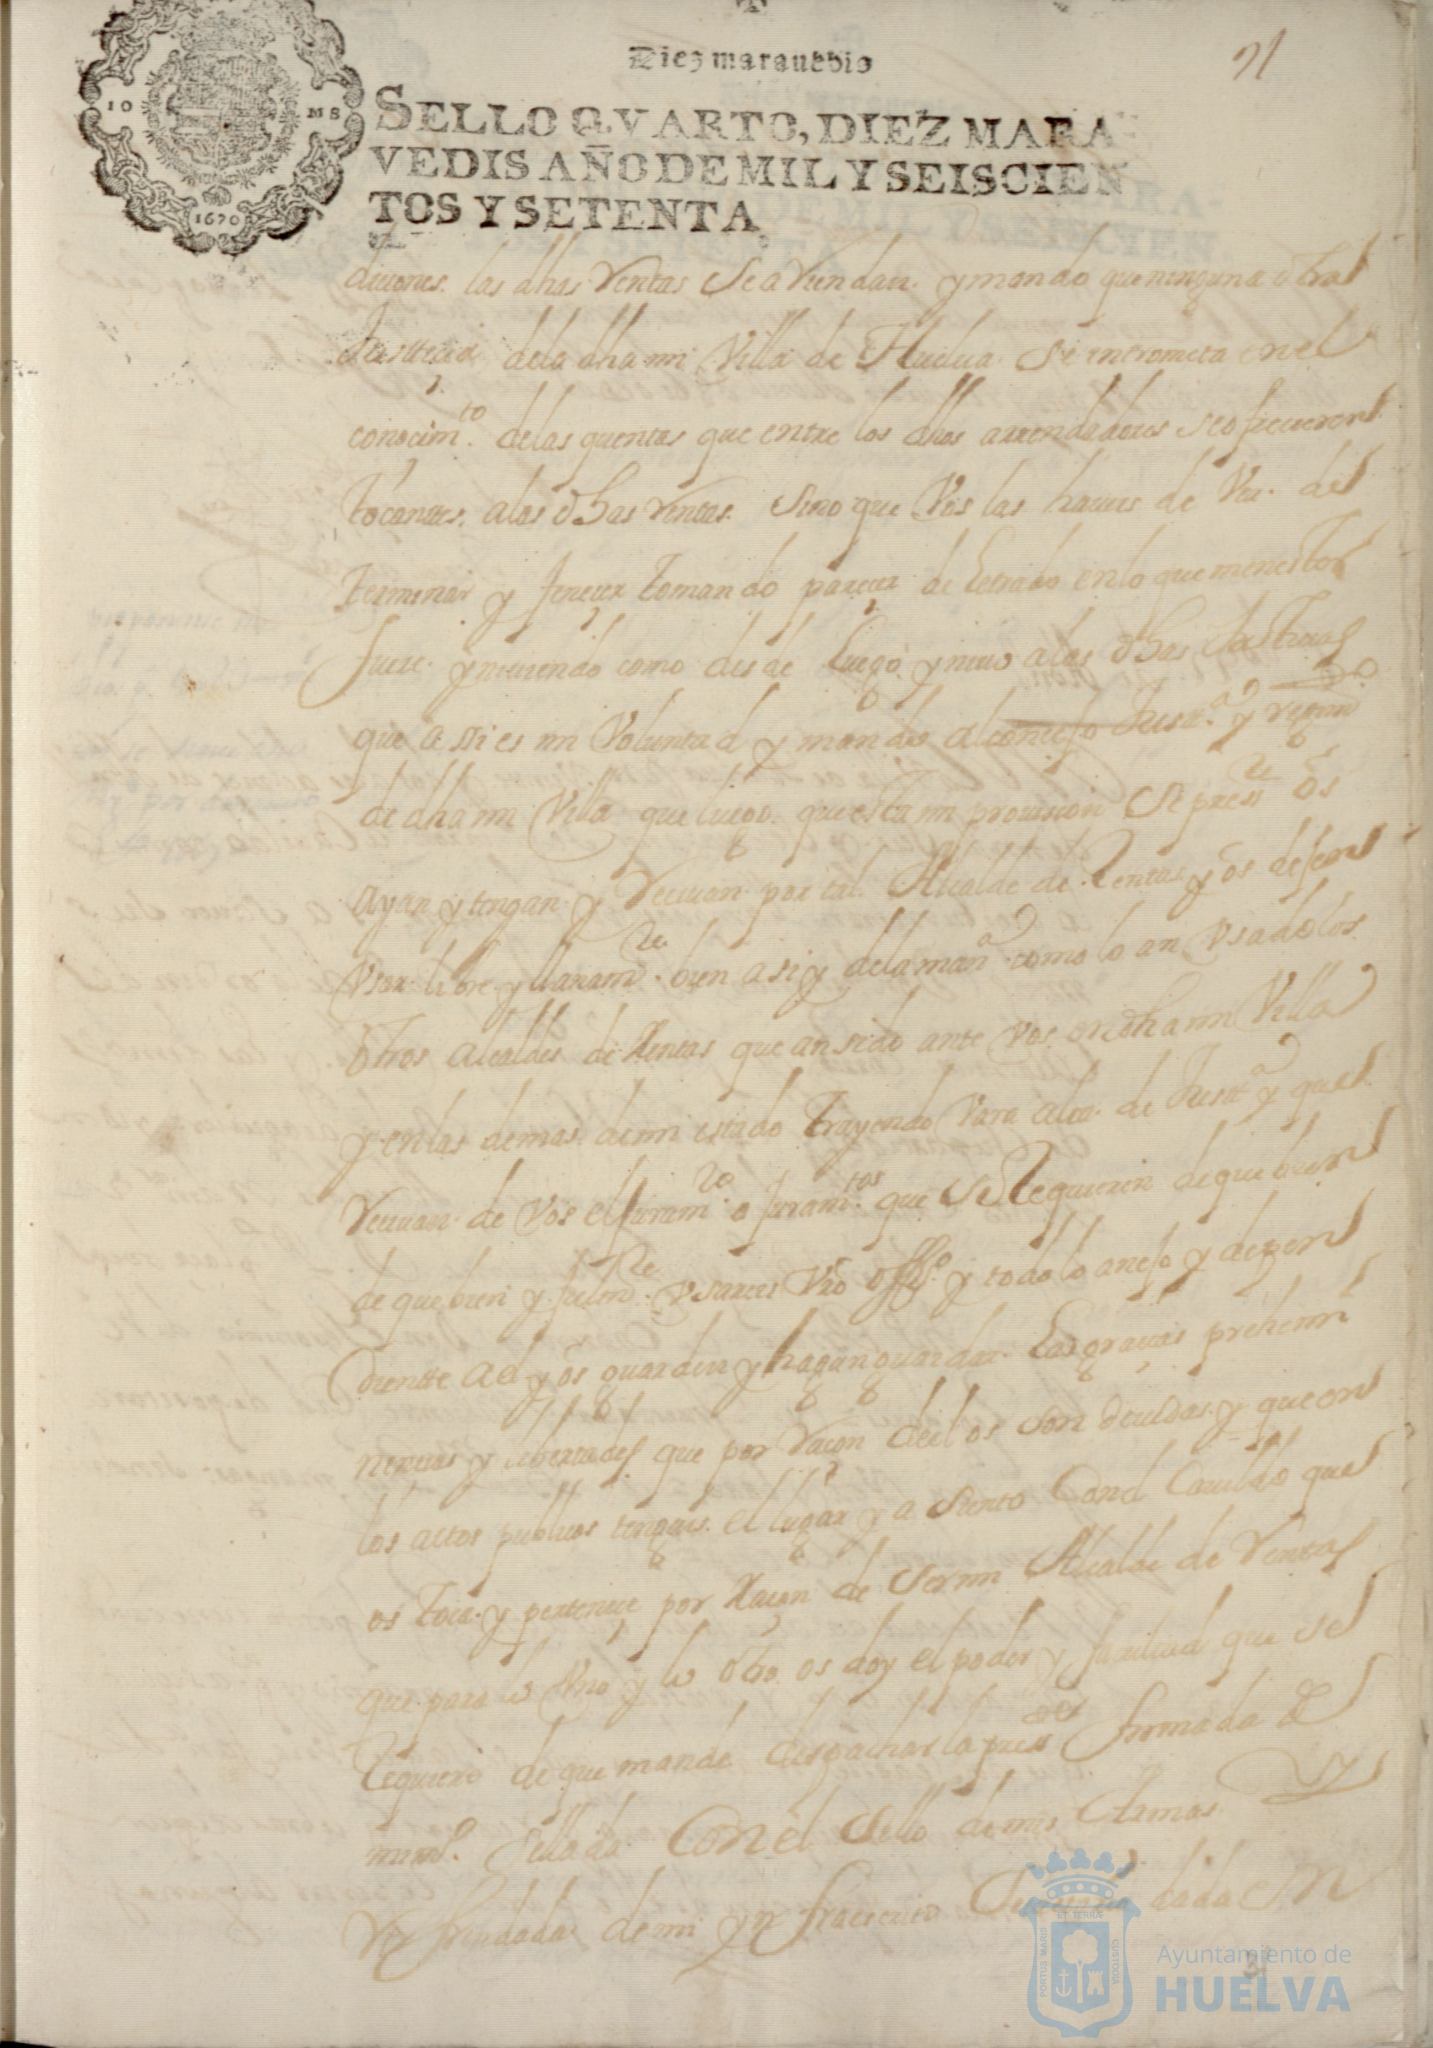 Diez marauedis
21
SELLO QVARTO, DIEZ MARA
VEDIS AÑO DE MIL Y SEISCIEN
TOS Y SETENTA
10 MS
1670
las dhas Ventas Se aRiendan. y mando que ninguna otra
Justticia dela dha mi Villa de Huelua. se intrometa en el
conocim.to delas quentas que entre los dhos arrendadores se ofrecieren
tocantes. alas dhas Rentas. Sino que Vos las haueis de Ver. de
terminar y fenecer tomando parecer de Letrado en lo que menester
fuere. yniuiendo como desde luego yniuo alas dhas Justicias
que assi es mi Voluntad y mando al concejo Just.a y regim.to
de dha mi Villa que luego. que esta mi prouision Se presste os
ayan y tengan y Reciuan por tal Alcalde de Rentas y os dejen
Vsar libre y llanam.te bien asi y dela man.a como lo an Vsado los
otros Alcaldes de Rentas que an sido ante Vos en dha mi Villa
y en las demas de mi estado trayendo Vara alta de Just.a y que
Reciuan de Vos el juram.to o juram.tos que Se Requieren de que bien
de que bien y fielm.te Vsareis Vro offi.o y todo lo anejo y depen
diente a el y os guarden y hagan guardar Las gracias prehemi
nencias y libertades que por Raçon dellos son deuidas y que en
los actos publicos tengais el lugar y asiento Con el Cauildo que
os toca y pertenece por Raçon de Ser mi Alcalde de Rentas
que para lo Vno y lo otro os doy el poder y facultad que se
Requiere de que mandé despachar la press.te firmada de
mi mano Sellada Con el Sello de mis Armas
Refrendada de mi ynfraescrito dada en
PORTUS MARIS ET TERRÆ CUSTODIA
Ayuntamiento de
HUELVA